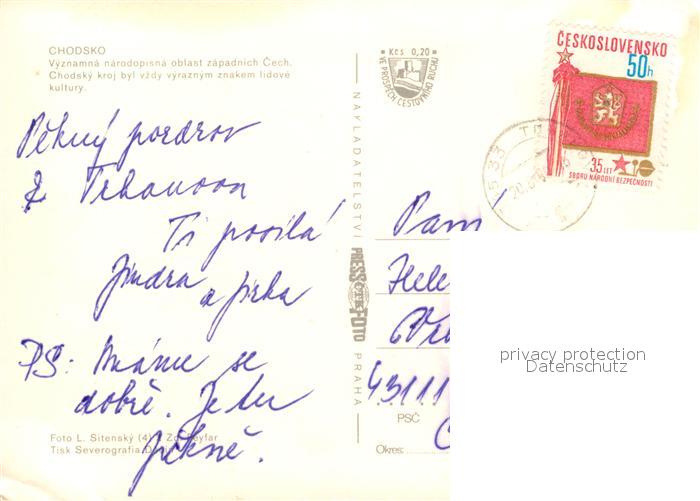 CHODSKO
Významná národopisná oblast západních Čech.
Chodský kroj byl vždy výrazným znakem lidové
kultury.
Kčs 0,20
VE PROSPĚCH CESTOVNÍHO RUCHU
ČESKOSLOVENSKO
50h
35 LET
SBORU NÁRODNÍ BEZPEČNOSTI
533
Pěkný pozdrav
z Trhanova
Ti posílá
Jindra
a Jirka
PS: Máme se
dobře. Je tu
pěkně.
NAKLADATELSTVÍ
PRESSFOTO
ČTK
PRAHA
Paní
Hele
43111
PSČ
Okres:
privacy protection
Datenschutz
Foto L. Sitenský (4)
Tisk Severografia